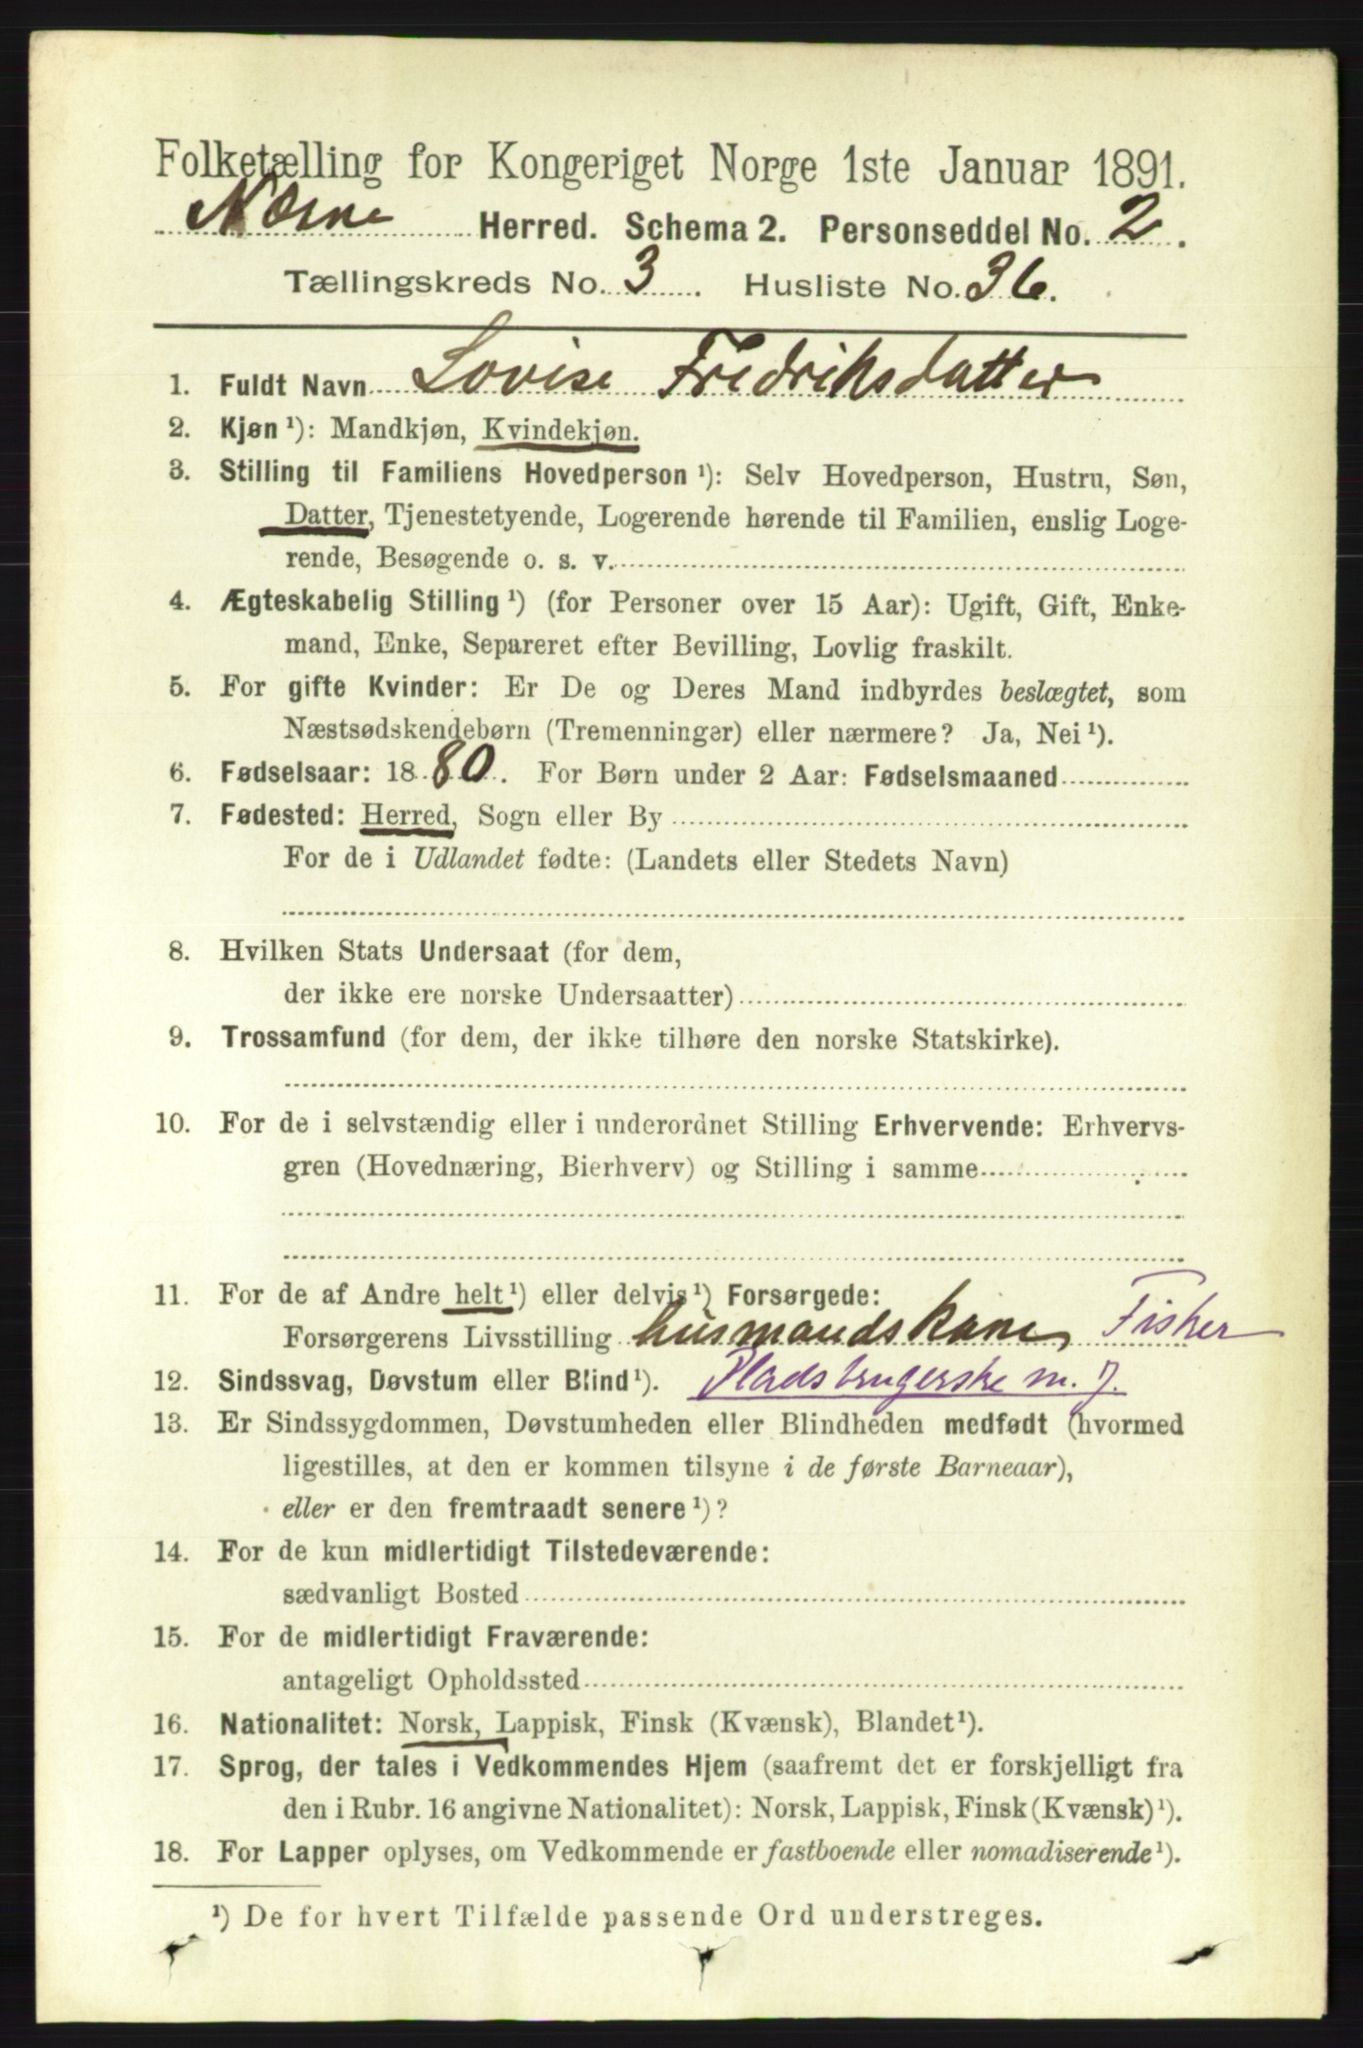 Folketælling for Kongeriget Norge 1ste Januar 1891.
Nesne Herred. Schema 2. Personseddel No. 2.
Tællingskreds No. 3. Husliste No. 36.
1. Fuldt Navn Lovise Fredriksdatter
2. Kjøn ¹): Mandkjøn, Kvindekjøn.
3. Stilling til Familiens Hovedperson ¹): Selv Hovedperson, Hustru, Søn,
Datter, Tjenestetyende, Logerende hørende til Familien, enslig Loge-
rende, Besøgende o. s. v.
4. Ægteskabelig Stilling ¹) (for Personer over 15 Aar): Ugift, Gift, Enke-
mand, Enke, Separeret efter Bevilling, Lovlig fraskilt.
5. For gifte Kvinder: Er De og Deres Mand indbyrdes beslægtet, som
Næstsødskendebørn (Tremenninger) eller nærmere? Ja, Nei ¹).
6. Fødselsaar: 1880. For Børn under 2 Aar: Fødselsmaaned
7. Fødested: Herred, Sogn eller By
For de i Udlandet fødte: (Landets eller Stedets Navn)
8. Hvilken Stats Undersaat (for dem,
der ikke ere norske Undersaatter)
9. Trossamfund (for dem, der ikke tilhøre den norske Statskirke).
10. For de i selvstændig eller i underordnet Stilling Erhvervende: Erhvervs-
gren (Hovednæring, Bierhverv) og Stilling i samme
11. For de af Andre helt ¹) eller delvis ¹) Forsørgede:
Forsørgerens Livsstilling husmandskone, Fisker
12. Sindssvag, Døvstum eller Blind ¹). Pladsbrugerske m. J.
13. Er Sindssygdommen, Døvstumheden eller Blindheden medfødt (hvormed
ligestilles, at den er kommen tilsyne i de første Barneaar),
eller er den fremtraadt senere ¹)?
14. For de kun midlertidigt Tilstedeværende:
sædvanligt Bosted
15. For de midlertidigt Fraværende:
antageligt Opholdssted
16. Nationalitet: Norsk, Lappisk, Finsk (Kvænsk), Blandet ¹).
17. Sprog, der tales i Vedkommendes Hjem (saafremt det er forskjelligt fra
den i Rubr. 16 angivne Nationalitet): Norsk, Lappisk, Finsk (Kvænsk) ¹).
18. For Lapper oplyses, om Vedkommende er fastboende eller nomadiserende ¹).
¹) De for hvert Tilfælde passende Ord understreges.